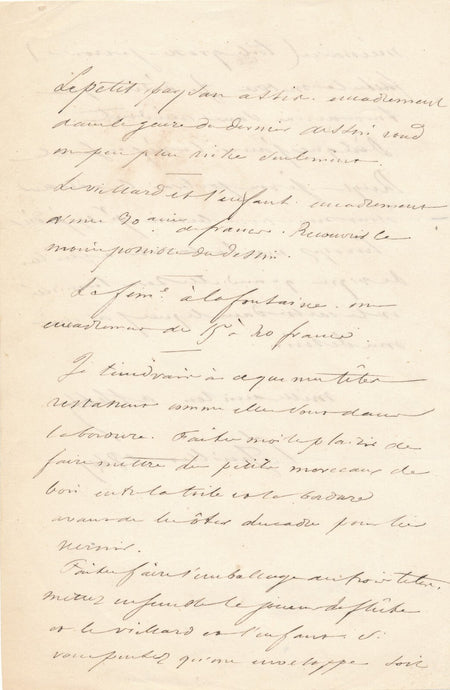 Le petit paysan assis. encadrement
dans le genre du dernier dessin rond
un peu plus riche seulement.
Le vieillard et l'enfant. encadrement
d'une 20aine de francs. Recouvrir le
moins possible du dessin.
La feme à la fontaine. un
encadrement de 15 à 20 francs
Je tiendrais à ce que mes têtes
restassent comme elles sont dans
la bordure. Faites moi le plaisir de
faire mettre de petits morceaux de
bois entre la toile et la bordure
avant de les ôter du cadre pour les
vernir.
Faites faire l'emballage des trois têtes,
mettez ensemble le joueur de flûte
et le vieillard et l'enfant. Si
vous pensez qu'une enveloppe soit